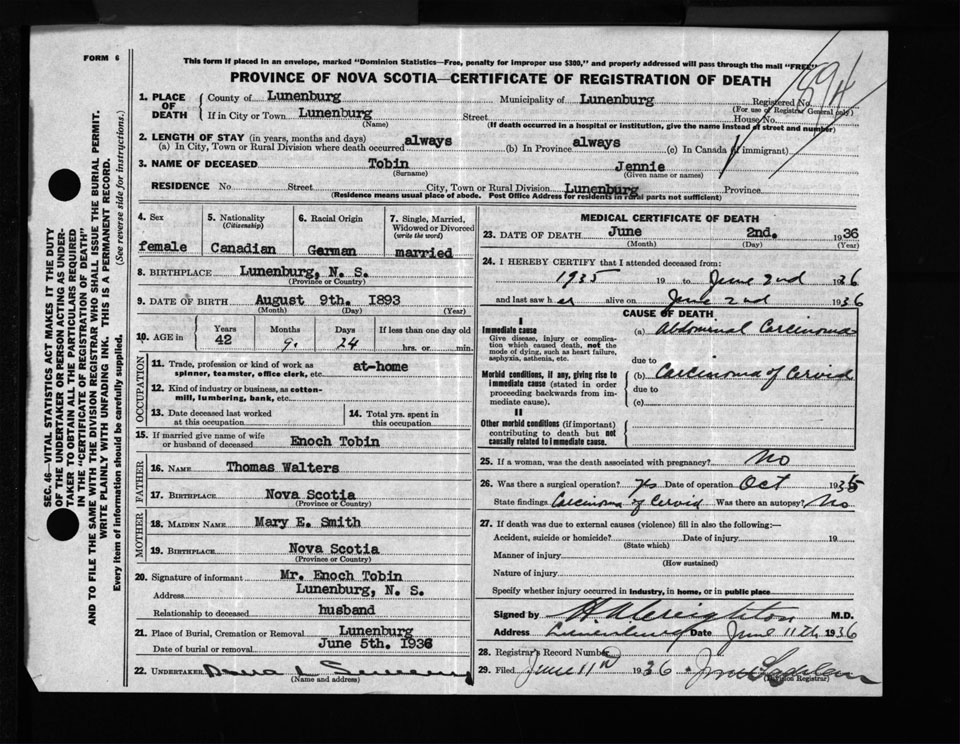 FORM 6
This form if placed in an envelope, marked "Dominion Statistics—Free, penalty for improper use $300," and properly addressed will pass through the mail "FREE"
PROVINCE OF NOVA SCOTIA—CERTIFICATE OF REGISTRATION OF DEATH
1. PLACE OF DEATH County of Lunenburg Municipality of Lunenburg Registered No.
(For use of Registrar General only)
If in City or Town Lunenburg Street House No.
(Name) (If death occurred in a hospital or institution, give the name instead of street and number)
2. LENGTH OF STAY (in years, months and days)
(a) In City, Town or Rural Division where death occurred always (b) In Province always (c) In Canada (if immigrant)
3. NAME OF DECEASED Tobin Jennie
(Surname) (Given name or names)
RESIDENCE No. Street City, Town or Rural Division Lunenburg Province
(Residence means usual place of abode. Post Office Address for residents in rural parts not sufficient)
4. Sex 5. Nationality (Citizenship) 6. Racial Origin 7. Single, Married, Widowed or Divorced (write the word)
female Canadian German married
8. BIRTHPLACE Lunenburg, N. S.
(Province or Country)
9. DATE OF BIRTH August 9th. 1893
(Month) (Day) (Year)
10. AGE in Years Months Days If less than one day old
42 9. 24 hrs. or min.
OCCUPATION
11. Trade, profession or kind of work as spinner, teamster, office clerk, etc. at-home
12. Kind of industry or business, as cotton-mill, lumbering, bank, etc.
13. Date deceased last worked at this occupation
14. Total yrs. spent in this occupation
15. If married give name of wife or husband of deceased Enoch Tobin
FATHER
16. NAME Thomas Walters
17. BIRTHPLACE Nova Scotia
(Province or Country)
MOTHER
18. MAIDEN NAME Mary E. Smith
19. BIRTHPLACE Nova Scotia
(Province or Country)
20. Signature of informant Mr. Enoch Tobin
Address Lunenburg, N. S.
Relationship to deceased husband
21. Place of Burial, Cremation or Removal Lunenburg
Date of burial or removal June 5th. 1936
22. UNDERTAKER
(Name and address)
MEDICAL CERTIFICATE OF DEATH
23. DATE OF DEATH June 2nd. 1936
(Month) (Day) (Year)
24. I HEREBY CERTIFY that I attended deceased from:
1935 19 to June 2nd 1936
and last saw her alive on June 2nd 1936
CAUSE OF DEATH
I
Immediate cause
Give disease, injury or complication which caused death, not the mode of dying, such as heart failure, asphyxia, asthenia, etc.
(a) Abdominal Carcinoma
due to
Morbid conditions, if any, giving rise to immediate cause (stated in order proceeding backwards from immediate cause).
(b) Carcinoma of Cervid
due to
(c)
II
Other morbid conditions (if important) contributing to death but not causally related to immediate cause.
25. If a woman, was the death associated with pregnancy? No
26. Was there a surgical operation? Yes Date of operation Oct 1935
State findings Carcinoma of Cervid Was there an autopsy? No
27. If death was due to external causes (violence) fill in also the following:—
Accident, suicide or homicide? Date of injury 19
(State which)
Manner of injury
(How sustained)
Nature of injury
Specify whether injury occurred in industry, in home, or in public place
Signed by M.D.
Address Lunenburg Date June 11th 1936
28. Registrar's Record Number
29. Filed June 11th 1936
(Division Registrar)
SEC. 46—VITAL STATISTICS ACT MAKES IT THE DUTY
OF THE UNDERTAKER OR PERSON ACTING AS UNDER-
TAKER TO OBTAIN ALL THE PARTICULARS REQUIRED
IN THE "CERTIFICATE OF REGISTRATION OF DEATH"
AND TO FILE THE SAME WITH THE DIVISION REGISTRAR WHO SHALL ISSUE THE BURIAL PERMIT.
WRITE PLAINLY WITH UNFADING INK. THIS IS A PERMANENT RECORD.
Every item of information should be carefully supplied. (See reverse side for instructions.)